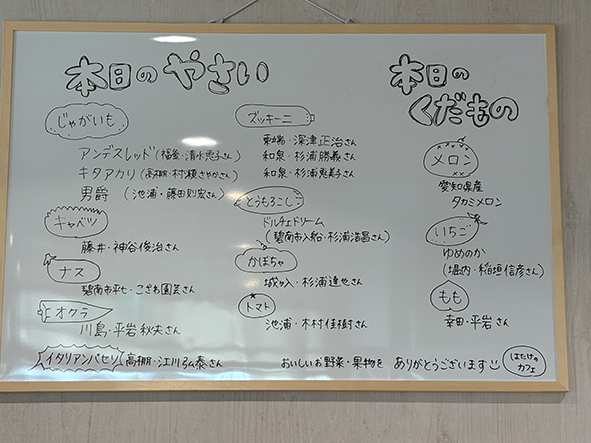 本日のやさい
じゃがいも
アンデスレッド(福釜・清水恵子さん)
キタアカリ(高棚・村瀬さやかさん)
男爵 (池浦・藤田則宏さん)
キャベツ
藤井・神谷俊治さん
ナス
碧南市平七・こざわ園芸さん
オクラ
川島・平岩秋夫さん
イタリアンパセリ 高棚・江川弘泰さん
ズッキーニ
東端・深津正治さん
和泉・杉浦勝義さん
和泉・杉浦恵美子さん
とうもろこし
ドルチェドリーム
(碧南市入船・杉浦浩昌さん)
かぼちゃ
城ヶ入・杉浦達也さん
トマト
池浦・木村佳樹さん
本日の
くだもの
メロン
愛知県産
タカミメロン
いちご
ゆめのか
(堀内・稲垣信彦さん)
もも
幸田・平岩さん
おいしいお野菜・果物を ありがとうございます
はたけの
カフェ